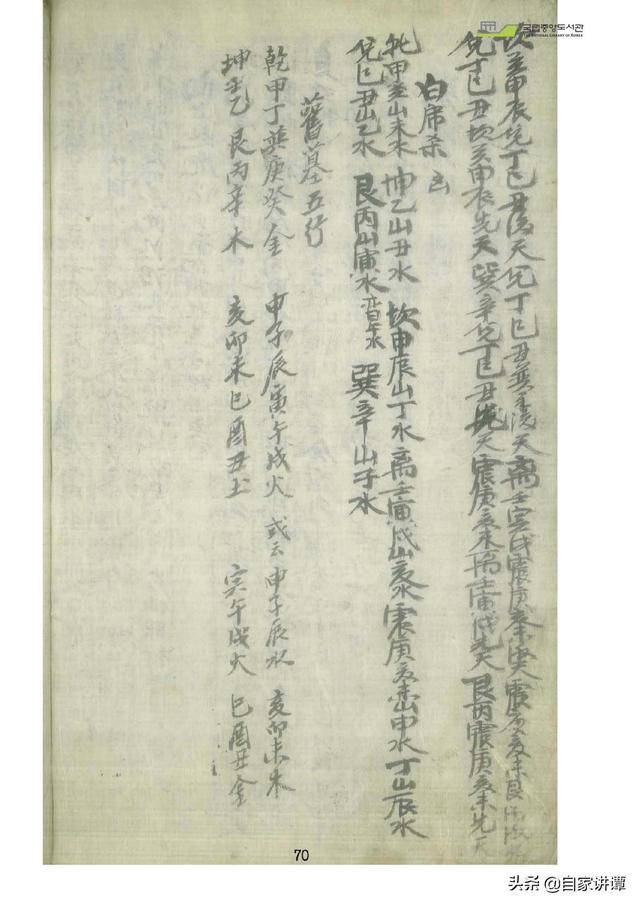 국립중앙도서관
THE NATIONAL LIBRARY OF KOREA
坎癸申辰兌丁巳丑後天 兌丁巳丑巽辛後天 离壬寅戌震庚亥未後天 震庚亥未艮丙
兌丁巳丑坎癸申辰先天 巽辛兌丁巳丑先天 震庚亥未离壬寅戌先天 艮丙震庚亥未先天
白虎杀
乾甲山未水 坤乙山丑水 坎申辰山丁水 离壬寅戌山亥水 震庚亥未山申水 丁山辰水
兌巳丑山乙水 艮丙山寅水 巽辛山子水
舊墓五行
乾甲丁巽庚癸金 申子辰寅午戌火 或云申子辰水 亥卯未木
坤壬乙艮丙辛木 亥卯未巳酉丑土 寅午戌火 巳酉丑金
70
头条 @自家讲谭